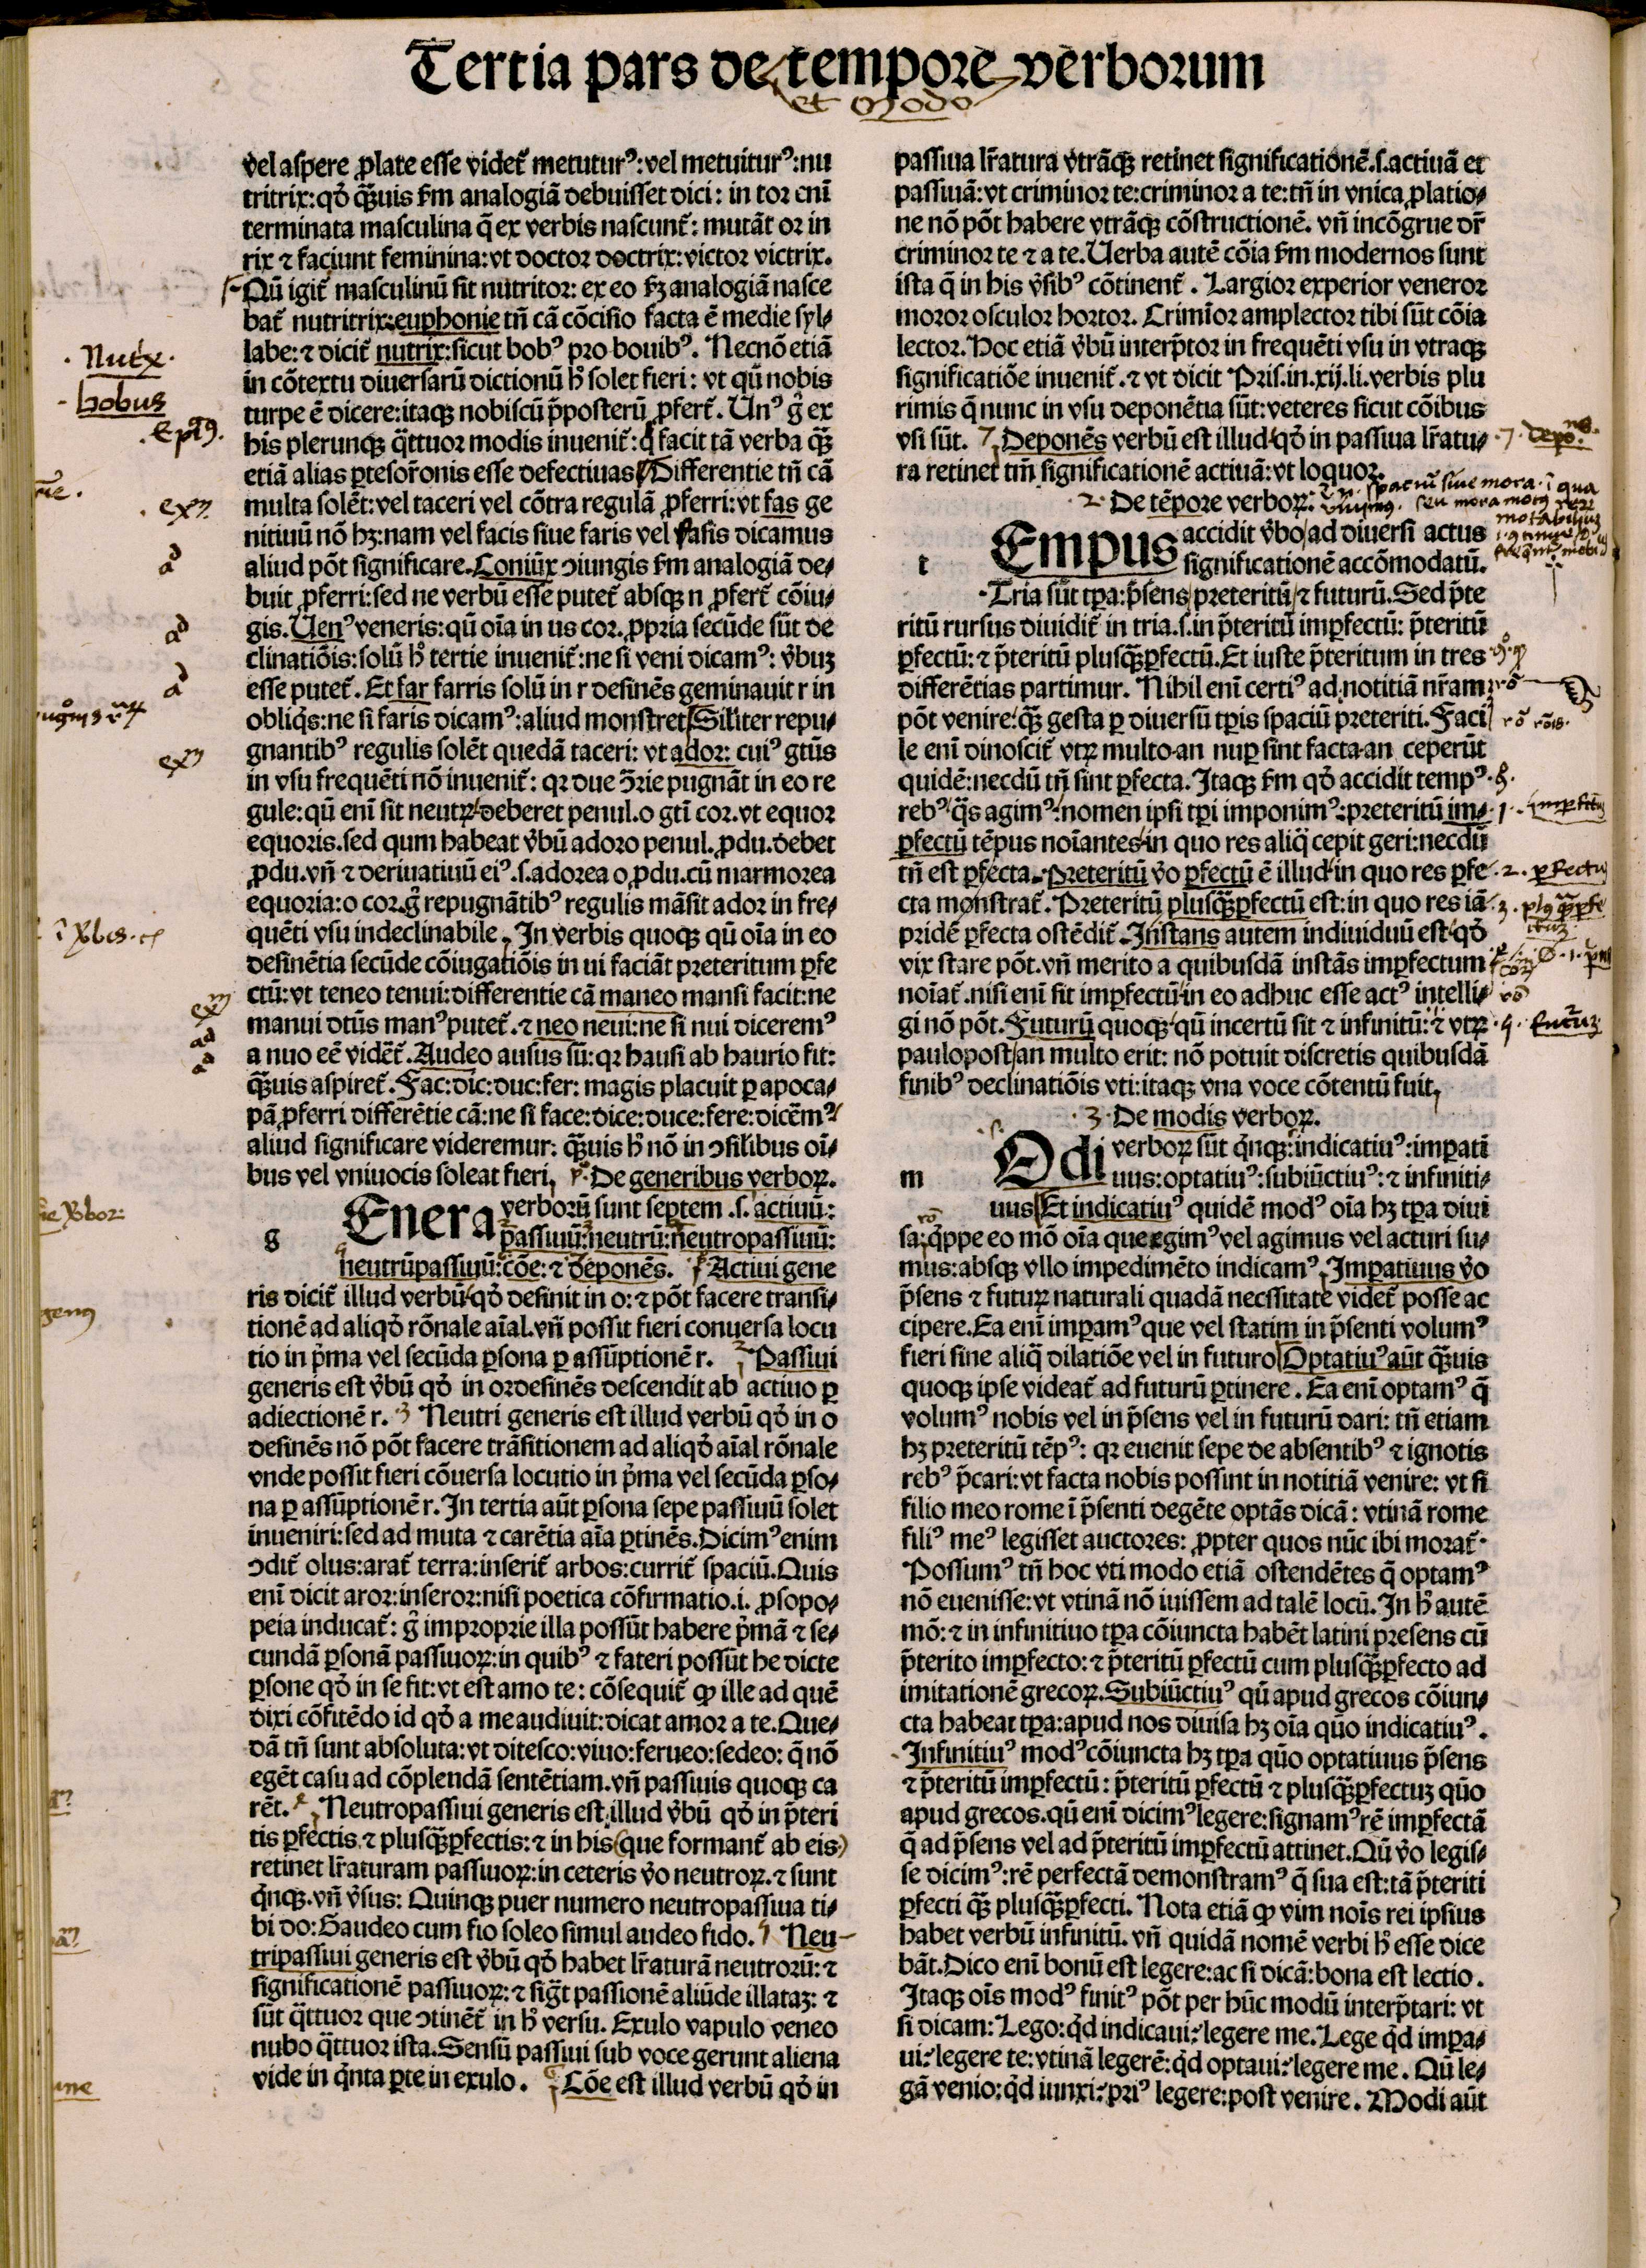 Tertia pars de tempore verborum
et modo
vel aſpere ꝓlate eſſe videt̃ metuturꝰ: vel metuiturꝰ: nu
tritrix: qđ q̃ꝫuis ẜm analogiā debuiſſet dici: in tor eni
terminata maſculina q̃ ex verbis naſcunt̃: mutāt or in
rix ⁊ faciunt feminina: vt doctor doctrix: victor victrix.
Qū igit̃ maſculinū ſit nutritor: ex eo ẜꝫ analogiā naſce
bat̃ nutritrix: euphonie tñ cā cōciſio facta ē medie ſyl⸗
labe: ⁊ dicit̃ nutrix: ſicut bobꝰ pro bouibꝰ. Necnō etiā
in cōtextu diuerſarū dictionū hͦ ſolet fieri: vt qū nobis
turpe ē dicere: itaqꝫ nobiſcū p̃poſterū ꝓfert̃. Unꝰ g̊ ex
his plerunqꝫ q̈ttuor modis inuenit̃: q̇ facit tā verba q̃ꝫ
etiā alias ꝑteſor̃onis eſſe defectiuas Differentie tñ cā
multa ſolēt: vel taceri vel cōtra regulā ꝓferri: vt fas ge
nitiuū nō hꝫ: nam vel facis ſiue faris vel faſis dicamus
aliud pōt ſignificare. Coniūx ↄiungis ẜm analogiā de⸗
buit ꝓferri: ſed ne verbū eſſe putet̃ abſqꝫ n ꝓfert̃ cōiu⸗
gis. Uenꝰ veneris: qū oīa in us cor. ꝓpria ſecūde ſūt de
clinatiōis: ſolū hͦ tertie inuenit̃: ne ſi veni dicamꝰ: v̓buꝫ
eſſe putet̃. Et far farris ſolū in r deſinēs geminauit r in
obliq̇s: ne ſi faris dicamꝰ: aliud monſtret Siliter repu⸗
gnantibꝰ regulis ſolēt quedā taceri: vt ador: cuiꝰ gtūs
in vſu frequēti nō inuenit̃: qꝛ due ↄ̃rie pugnāt in eo re
gule: qū enī ſit neutꝝ deberet penul. o gtī cor. vt equor
equoris. ſed qum habeat v̓bū adoro penul. ꝓdu. debet
ꝓdu. vñ ⁊ deriuatiuū eiꝰ. ſ. adorea o ꝓdu. cū marmorea
equoria: o cor. g̊ repugnātibꝰ regulis māſit ador in fre⸗
quēti vſu indeclinabile. In verbis quoqꝫ qū oīa in eo
deſinētia ſecūde cōiugatiōis in ui faciāt preteritum ꝑfe
ctū: vt teneo tenui: differentie cā maneo manſi facit: ne
manui dtūs manꝰ putet̃. ⁊ neo neui: ne ſi nui diceremꝰ
a nuo eē vidēt̃. Audeo auſus ſū: qꝛ hauſi ab haurio fit:
q̃ꝫuis aſpiret̃. Fac: dic: duc: fer: magis placuit ꝑ apoca⸗
pā ꝓferri differētie cā: ne ſi face: dice: duce: fere: dicēmꝰ
aliud ſignificare videremur: q̃ꝫuis hͦ nō in ↄſilibus oī⸗
bus vel vniuocis ſoleat fieri. De generibus verboꝝ.
g Enera verborū sunt ſeptem .ſ. actiuū:
paſſiuū: neutrū: neutropaſſiuū:
neutrūpaſſiuū: cōe: ⁊ deponēs. Actiui gene
ris dicit̃ illud verbū qđ deſinit in o: ⁊ pōt facere tranſi⸗
tionē ad aliqđ rōnale aīal. vñ poſſit fieri conuerſa locu
tio in p̓ma vel ſecūda ꝑſona ꝑ aſſūptionē r. 2 Paſſiui
generis eſt v̓bū qđ in or deſinēs deſcendit ab actiuo ꝑ
adiectionē r. 3 Neutri generis eſt illud verbū qđ in o
deſinēs nō pōt facere trāſitionem ad aliqđ aīal rōnale
vnde poſſit fieri cōuerſa locutio in p̓ma vel ſecūda ꝑſo⸗
na ꝑ aſſūptionē r. In tertia aūt ꝑſona ſepe paſſiuū ſolet
inueniri: ſed ad muta ⁊ carētia aīa ꝑtinēs. Dicimꝰ enim
ↄdit̃ olus: arat̃ terra: inſerit̃ arbos: currit̃ ſpaciū. Quis
enī dicit aror: inſeror: niſi poetica cōfirmatio .i. ꝓſopo⸗
peia inducat̃: g̊ improprie illa poſſūt habere p̓mā ⁊ ſe⸗
cundā ꝑſonā paſſiuoꝝ: in quibꝰ ⁊ fateri poſſūt he dicte
ꝑſone qđ in ſe fit: vt eſt amo te: cōſequit̃ ꝙ ille ad quē
dixi cōfitēdo id qđ a me audiuit: dicat amor a te. Que⸗
dā tñ ſunt abſoluta: vt diteſco: viuo: ferueo: ſedeo: q̃ nō
egēt caſu ad cōplendā ſentētiam. vñ paſſiuis quoqꝫ ca
rēt. Neutropaſſiui generis eſt illud v̓bū qđ in p̃teri
tis ꝑfectis ⁊ pluſq̃ꝫꝑfectis: ⁊ in his (que formant̃ ab eis)
retinet lr̃aturam paſſiuoꝝ: in ceteris v̓o neutroꝝ. ⁊ ſunt
q̇nqꝫ. vñ v̓ſus: Quinqꝫ puer numero neutropaſſiua ti⸗
bi do: Gaudeo cum fio ſoleo ſimul audeo fido. Neu
tripaſſiui generis eſt v̓bū qđ habet lr̃aturā neutrorū: ⁊
ſignificationē paſſiuoꝝ: ⁊ ſig̃t paſſionē aliūde illataꝫ: ⁊
ſūt q̈ttuor que ↄtinēt̃ in hͦ verſu. Exulo vapulo veneo
nubo q̈ttuor iſta. Senſū paſſiui ſub voce gerunt aliena
vide in q̇nta ꝑte in exulo. Cōe eſt illud verbū qđ in
passiua lr̃atura vtrāqꝫ retinet ſignificationē .ſ. actiuā et
paſſiuā: vt criminor te: criminor a te: tñ in vnica ꝓlatio⸗
ne nō pōt habere vtrāqꝫ cōſtructionē. vñ incōgrue dr̃
criminor te ⁊ a te. Uerba autē cōia ẜm modernos ſunt
iſta q̃ in his v̓ſibꝰ cōtinent̃. Largior experior veneror
moror oſculor hortor. Crimīor amplector tibi ſūt cōia
lector. Hoc etiā v̓bū interp̃tor in frequēti vſu in vtraqꝫ
ſignificatiōe inuenit̃. ⁊ vt dicit Priſ. in .xij. li. verbis plu
rimis q̃ nunc in vſu deponētia ſūt: veteres ſicut cōibus
vſi ſūt. 7 Deponēs verbū eſt illud qđ in paſſiua lr̃atu⸗
ra retinet tm̄ ſignificationē actiuā: vt loquor.
2 De tēpore verboꝝ:
t Empus accidit v̓bo ad diuerſi actus
ſignificationē accōmodatū.
Tria ſūt tꝑa: p̃ſens preteritū ⁊ futurū. Sed p̃te
ritū rurſus diuidit̃ in tria .ſ. in p̃teritū imꝑfectū: p̃teritū
ꝑfectū: ⁊ p̃teritū pluſq̃ꝫꝑfectū. Et iuſte p̃teritum in tres
differētias partimur. Nihil enī certiꝰ ad notitiā nr̃am
pōt venire: q̃ꝫ geſta ꝑ diuerſū tꝑis ſpaciū preteriti. Faci
le enī dinoſcit̃ vtꝝ multo an nuꝑ ſint facta an ceperūt
quidē: necdū tñ ſint ꝑfecta. Itaqꝫ ẜm qđ accidit tempꝰ
rebꝰ q̃s agimꝰ: nomen ipſi tꝑi imponimꝰ: preteritū im⸗
ꝑfectū tēpus noīantes in quo res aliq̃ cepit geri: necdū
tñ eſt ꝑfecta. Preteritū v̓o ꝑfectū ē illud in quo res ꝑfe
cta monſtrat̃. Preteritū pluſq̃ꝫꝑfectū eſt: in quo res iā
pridē ꝑfecta oſtēdit̃. Inſtans autem indiuiduū eſt qđ
vix ſtare pōt. vñ merito a quibuſdā inſtās imꝑfectum
noīat̃. niſi enī ſit imꝑfectū in eo adhuc eſſe actꝰ intelli⸗
gi nō pōt. Futurū quoqꝫ qū incertū ſit ⁊ infinitū: ⁊ vtꝝ
paulopoſt an multo erit: nō potuit diſcretis quibuſdā
finibꝰ declinatiōis vti: itaqꝫ vna voce cōtentū fuit.
3 De modis verboꝝ.
m Odi verboꝝ ſūt q̇nqꝫ: indicatiuꝰ: imꝑati
uus: optatiuꝰ: ſubiūctiuꝰ: ⁊ infiniti⸗
uus Et indicatiuꝰ quidē modꝰ oīa hꝫ tꝑa diui
ſa: q̇ppe eo mō oīa que egimꝰ vel agimus vel acturi ſu⸗
mus: abſqꝫ vllo impedimēto indicamꝰ. Imꝑatiuus v̓o
p̃ſens ⁊ futuꝝ naturali quadā necſſitate videt̃ poſſe ac
cipere. Ea enī imꝑamꝰ que vel ſtatim in p̃ſenti volumꝰ
fieri ſine aliq̃ dilatiōe vel in futuro Optatiuꝰ aūt q̃ꝫuis
quoqꝫ ipſe videat̃ ad futurū ꝑtinere. Ea enī optamꝰ q̃
volumꝰ nobis vel in p̃ſens vel in futurū dari: tñ etiam
hꝫ preteritū tēpꝰ: qꝛ euenit ſepe de abſentibꝰ ⁊ ignotis
rebꝰ p̃cari: vt facta nobis poſſint in notitiā venire: vt ſi
filio meo rome ī p̃ſenti degēte optās dicā: vtinā rome
filiꝰ meꝰ legiſſet auctores: ꝓpter quos nūc ibi morat̃.
Poſſumꝰ tñ hoc vti modo etiā oſtendētes q̃ optamꝰ
nō eueniſſe: vt vtinā nō iuiſſem ad talē locū. In hͦ autē
mō: ⁊ in infinitiuo tꝑa cōiuncta habēt latini preſens cū
p̃terito imꝑfecto: ⁊ p̃teritū ꝑfectū cum pluſq̃ꝫꝑfecto ad
imitationē grecoꝝ. Subiūctiuꝰ qū apud grecos cōiun⸗
cta habeat tꝑa: apud nos diuiſa hꝫ oīa quō indicatiuꝰ.
Infinitiuꝰ modꝰ cōiuncta hꝫ tꝑa quō optatiuus p̃ſens
⁊ p̃teritū imꝑfectū: p̃teritū ꝑfectū ⁊ pluſq̃ꝫꝑfectuꝫ quō
apud grecos. qū enī dicimꝰ legere: ſignamꝰ rē imꝑfectā
q̃ ad p̃ſens vel ad p̃teritū imꝑfectū attinet. Qū v̓o legiſ⸗
ſe dicimꝰ: rē perfectā demonſtramꝰ q̃ ſua eſt: tā p̃teriti
ꝑfecti q̃ꝫ pluſq̃ꝫꝑfecti. Nota etiā ꝙ vim noīs rei ipſius
habet verbū infinitū. vñ quidā nomē verbi hͦ eſſe dice
bāt. Dico enī bonū eſt legere: ac ſi dicā: bona eſt lectio.
Itaqꝫ oīs modꝰ finitꝰ pōt per hūc modū interp̃tari: vt
ſi dicam: Lego: q̇d indicaui: legere me. Lege q̇d imꝑa⸗
ui: legere te: vtinā legerē: q̇d optaui: legere me. Qū le⸗
gā venio: q̇d iunxi: priꝰ legere: poſt venire. Modi aūt
hobus